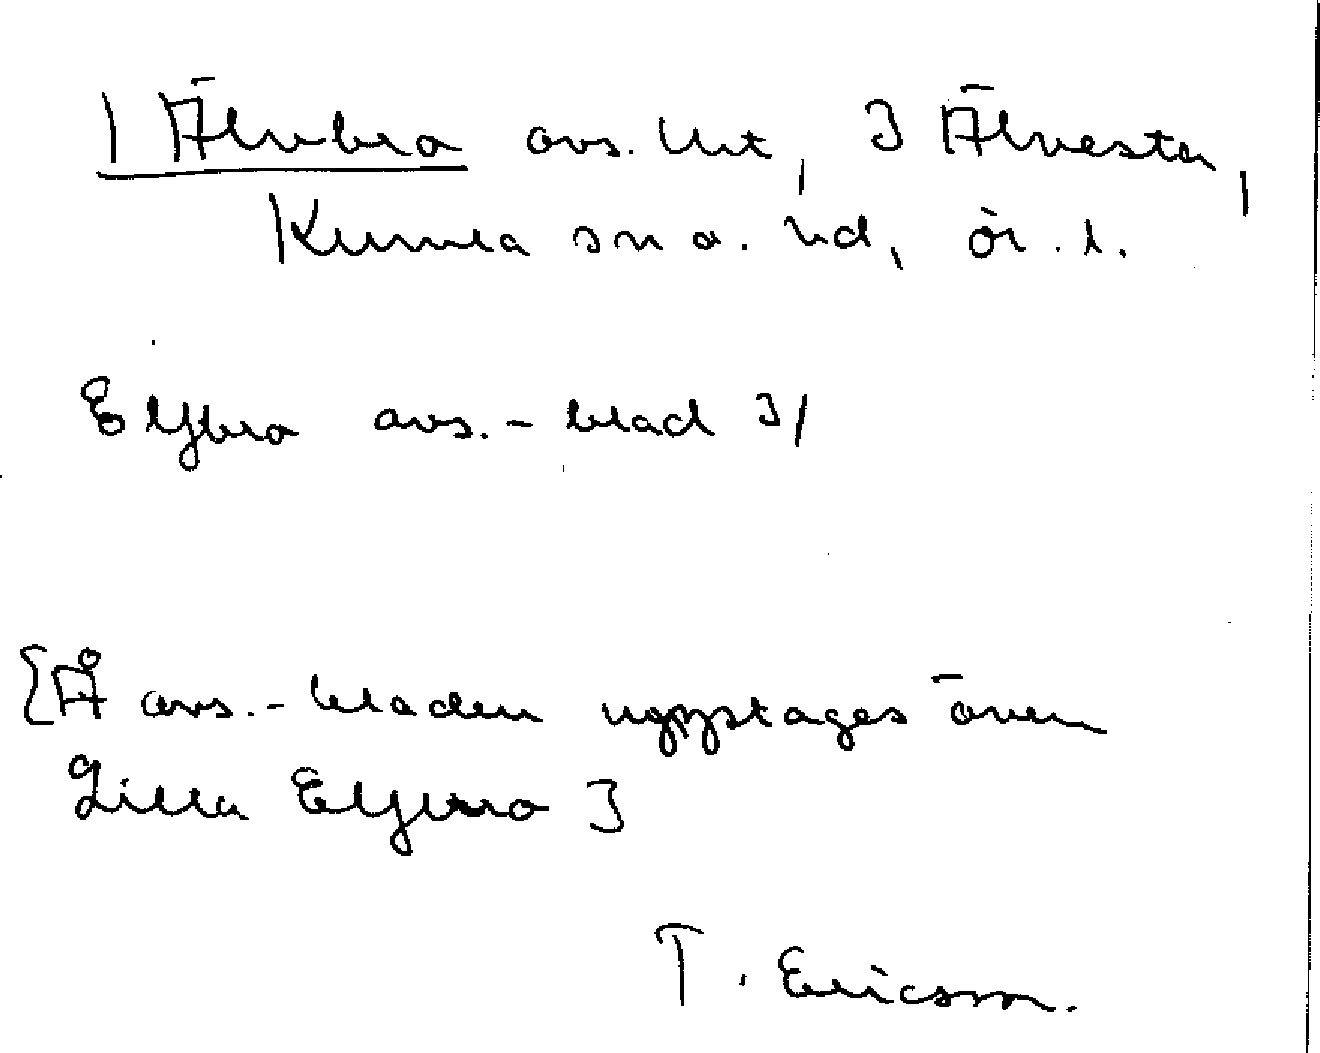 1 Älvbro avs. lht, 3 Älvesta,
Kumla sn o. hd, Ör. l.
Elfbro avs.-blad 3/
[Å avs.-bladen upptages även
Lilla Elfbro]
T. Ericson.